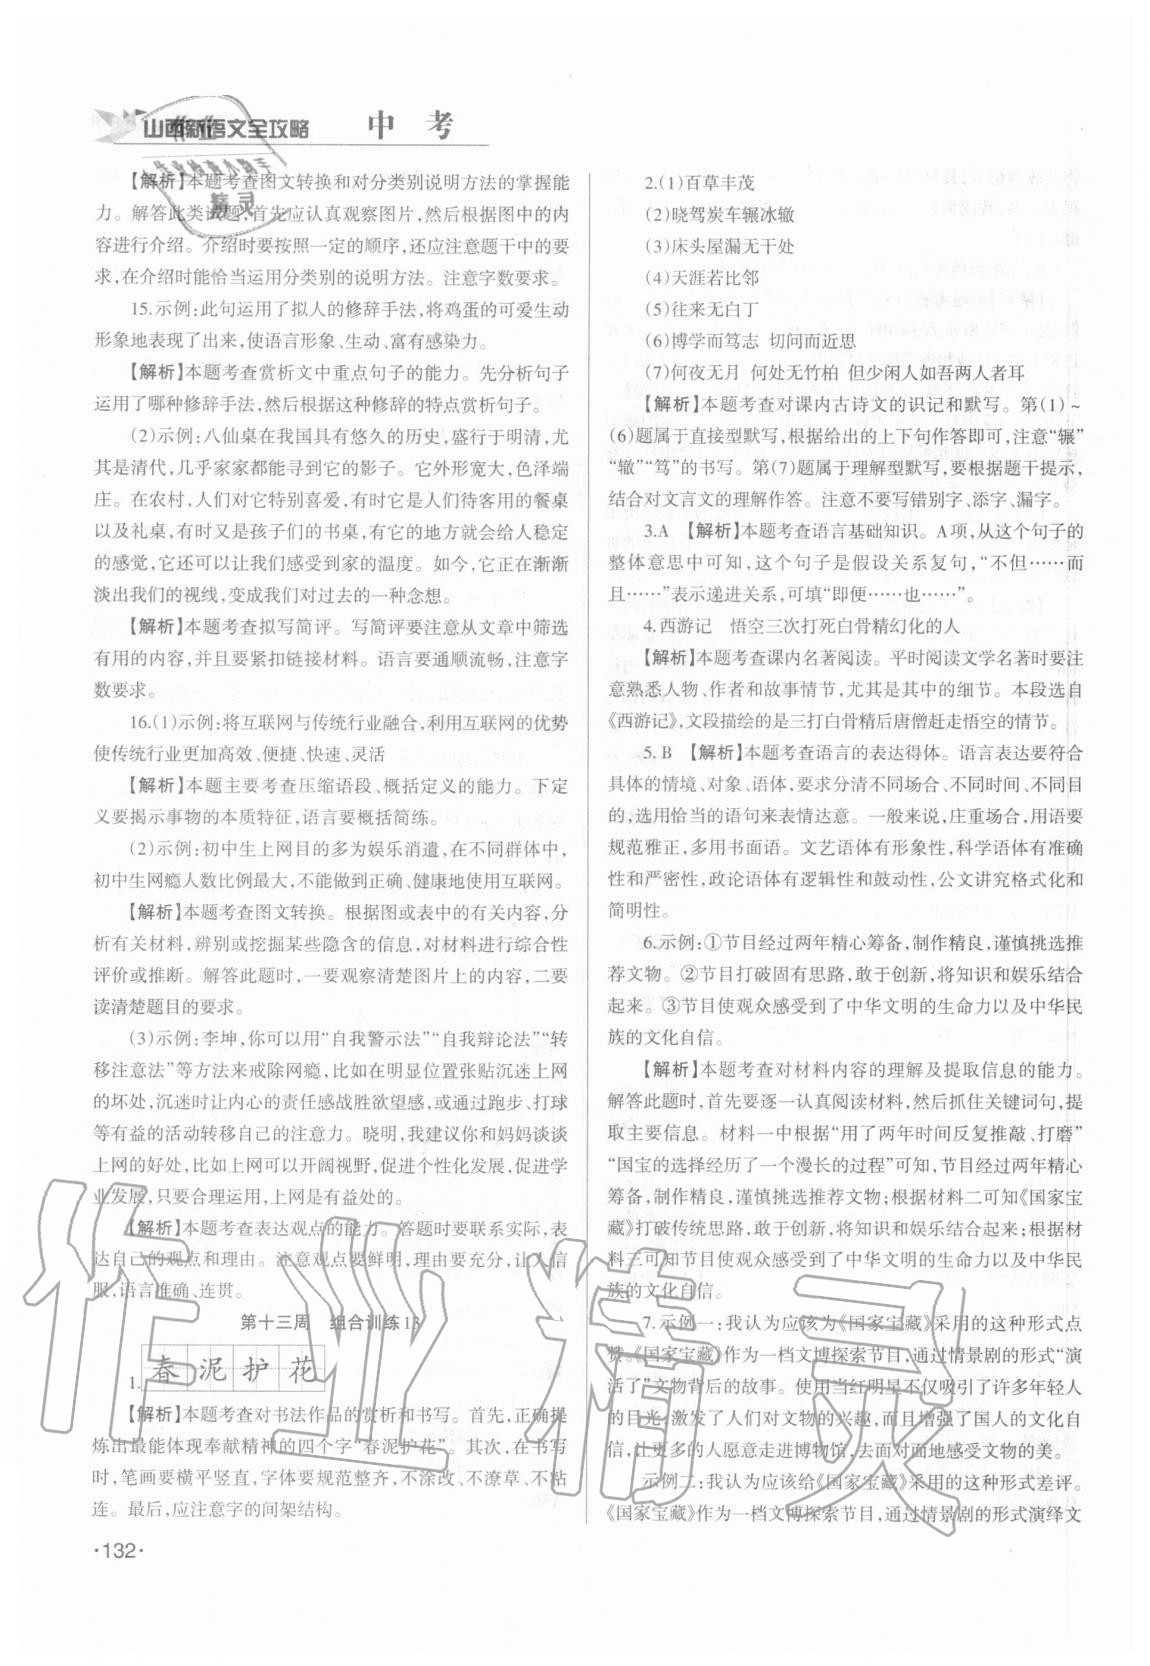 山西新语文全攻略 中考
【解析】本题考查图文转换和对分类别说明方法的掌握能
力。解答此类试题,首先应认真观察图片,然后根据图中的内
容进行介绍。介绍时要按照一定的顺序,还应注意题干中的要
求,在介绍时能恰当运用分类别的说明方法。注意字数要求。
15.示例:此句运用了拟人的修辞手法,将鸡蛋的可爱生动
形象地表现了出来,使语言形象、生动、富有感染力。
【解析】本题考查赏析文中重点句子的能力。先分析句子
运用了哪种修辞手法,然后根据这种修辞的特点赏析句子。
(2)示例:八仙桌在我国具有悠久的历史,盛行于明清,尤
其是清代,几乎家家都能寻到它的影子。它外形宽大,色泽端
庄。在农村,人们对它特别喜爱,有时它是人们待客用的餐桌
以及礼桌,有时又是孩子们的书桌,有它的地方就会给人稳定
的感觉,它还可以让我们感受到家的温度。如今,它正在渐渐
淡出我们的视线,变成我们对过去的一种念想。
【解析】本题考查拟写简评。写简评要注意从文章中筛选
有用的内容,并且要紧扣链接材料。语言要通顺流畅,注意字
数要求。
16.(1)示例:将互联网与传统行业融合,利用互联网的优势
使传统行业更加高效、便捷、快速、灵活
【解析】本题主要考查压缩语段、概括定义的能力。下定
义要揭示事物的本质特征,语言要概括简练。
(2)示例:初中生上网目的多为娱乐消遣,在不同群体中,
初中生网瘾人数比例最大,不能做到正确、健康地使用互联网。
【解析】本题考查图文转换。根据图或表中的有关内容,分
析有关材料,辨别或挖掘某些隐含的信息,对材料进行综合性
评价或推断。解答此题时,一要观察清楚图片上的内容,二要
读清楚题目的要求。
(3)示例:李坤,你可以用“自我警示法”“自我辩论法”“转
移注意法”等方法来戒除网瘾,比如在明显位置张贴沉迷上网
的坏处,沉迷时让内心的责任感战胜欲望感,或通过跑步、打球
等有益的活动转移自己的注意力。晓明,我建议你和妈妈谈谈
上网的好处,比如上网可以开阔视野,促进个性化发展,促进学
业发展,只要合理运用,上网是有益处的。
【解析】本题考查表达观点的能力。答题时要联系实际,表
达自己的观点和理由。注意观点要鲜明,理由要充分,让人信
服,语言准确、连贯。
第十三周 组合训练13
1.春泥护花
【解析】本题考查对书法作品的赏析和书写。首先,正确提
炼出最能体现奉献精神的四个字“春泥护花”。其次,在书写
时,笔画要横平竖直,字体要规范整齐,不涂改、不潦草、不粘
连。最后,应注意字的间架结构。
·132·
2.(1)百草丰茂
(2)晓驾炭车辗冰辙
(3)床头屋漏无干处
(4)天涯若比邻
(5)往来无白丁
(6)博学而笃志 切问而近思
(7)何夜无月 何处无竹柏 但少闲人如吾两人者耳
【解析】本题考查对课内古诗文的识记和默写。第(1)~
(6)题属于直接型默写,根据给出的上下句作答即可,注意“辗”
“辙”“笃”的书写。第(7)题属于理解型默写,要根据题干提示,
结合对文言文的理解作答。注意不要写错别字、添字、漏字。
3.A 【解析】本题考查语言基础知识。A项,从这个句子的
整体意思中可知,这个句子是假设关系复句,“不但……而
且……”表示递进关系,可填“即便……也……”。
4.西游记 悟空三次打死白骨精幻化的人
【解析】本题考查课内名著阅读。平时阅读文学名著时要注
意熟悉人物、作者和故事情节,尤其是其中的细节。本段选自
《西游记》,文段描绘的是三打白骨精后唐僧赶走悟空的情节。
5.B 【解析】本题考查语言的表达得体。语言表达要符合
具体的情境、对象、语体,要求分清不同场合、不同时间、不同目
的,选用恰当的语句来表情达意。一般来说,庄重场合,用语要
规范雅正,多用书面语。文艺语体有形象性,科学语体有准确
性和严密性,政论语体有逻辑性和鼓动性,公文讲究格式化和
简明性。
6.示例:①节目经过两年精心筹备,制作精良,谨慎挑选推
荐文物。②节目打破固有思路,敢于创新,将知识和娱乐结合
起来。③节目使观众感受到了中华文明的生命力以及中华民
族的文化自信。
【解析】本题考查对材料内容的理解及提取信息的能力。
解答此题时,首先要逐一认真阅读材料,然后抓住关键词句,提
取主要信息。材料一中根据“用了两年时间反复推敲、打磨”
“国宝的选择经历了一个漫长的过程”可知,节目经过两年精心
筹备,制作精良,谨慎挑选推荐文物;根据材料二可知《国家宝
藏》打破传统思路,敢于创新,将知识和娱乐结合起来;根据材
料三可知节目使观众感受到了中华文明的生命力以及中华民
族的文化自信。
7.示例一:我认为应该为《国家宝藏》采用的这种形式点
赞。《国家宝藏》作为一档文博探索节目,通过情景剧的形式“演
活了”文物背后的故事。使用当红明星不仅吸引了许多年轻人
的目光,激发了人们对文物的兴趣,而且增强了国人的文化自
信,让更多的人愿意走进博物馆,去面对面地感受文物的美。
示例二:我认为应该给《国家宝藏》采用的这种形式差评。
《国家宝藏》作为一档文博探索节目,通过情景剧的形式演绎文
作业精灵